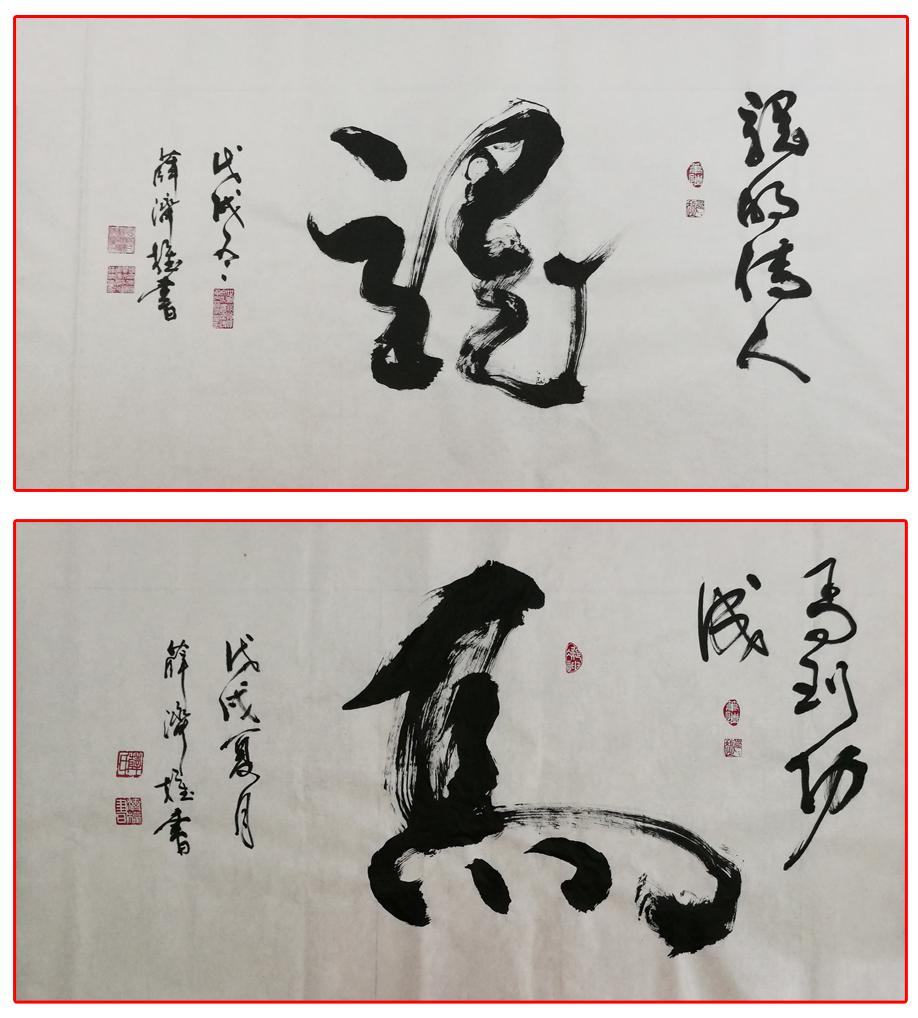 龍的傳人
龍
戊戌冬
薛濟雄書
馬到功
成
馬
戊戌夏月
薛濟雄書